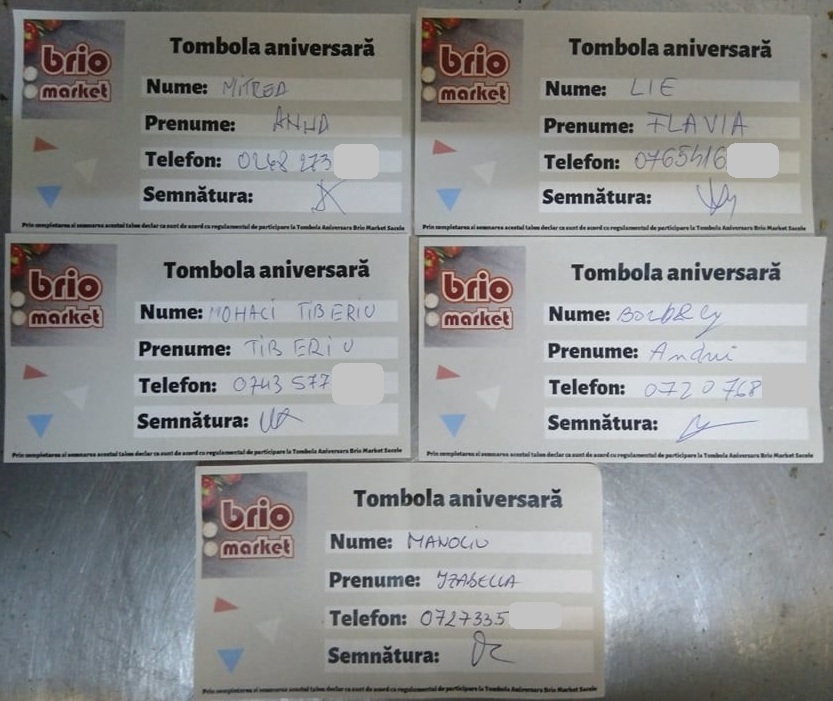 brio market
Tombola aniversară
Nume: MITREA
Prenume: ANNA
Telefon: 0248 273
Semnătura:
Prin completarea si semnarea acestui talon declar ca sunt de acord cu regulamentul de participare la Tombola Aniversara Brio Market Sacele
brio market
Tombola aniversară
Nume: LIE
Prenume: FLAVIA
Telefon: 0765416
Semnătura:
Prin completarea si semnarea acestui talon declar ca sunt de acord cu regulamentul de participare la Tombola Aniversara Brio Market Sacele
brio market
Tombola aniversară
Nume: MOHACI TIBERIU
Prenume: TIBERIU
Telefon: 0743 577
Semnătura:
Prin completarea si semnarea acestui talon declar ca sunt de acord cu regulamentul de participare la Tombola Aniversara Brio Market Sacele
brio market
Tombola aniversară
Nume:
Prenume: Andrei
Telefon: 0720 768
Semnătura:
Prin completarea si semnarea acestui talon declar ca sunt de acord cu regulamentul de participare la Tombola Aniversara Brio Market Sacele
brio market
Tombola aniversară
Nume: MANOLIU
Prenume: YZABELLA
Telefon: 0727335
Semnătura:
Prin completarea si semnarea acestui talon declar ca sunt de acord cu regulamentul de participare la Tombola Aniversara Brio Market Sacele